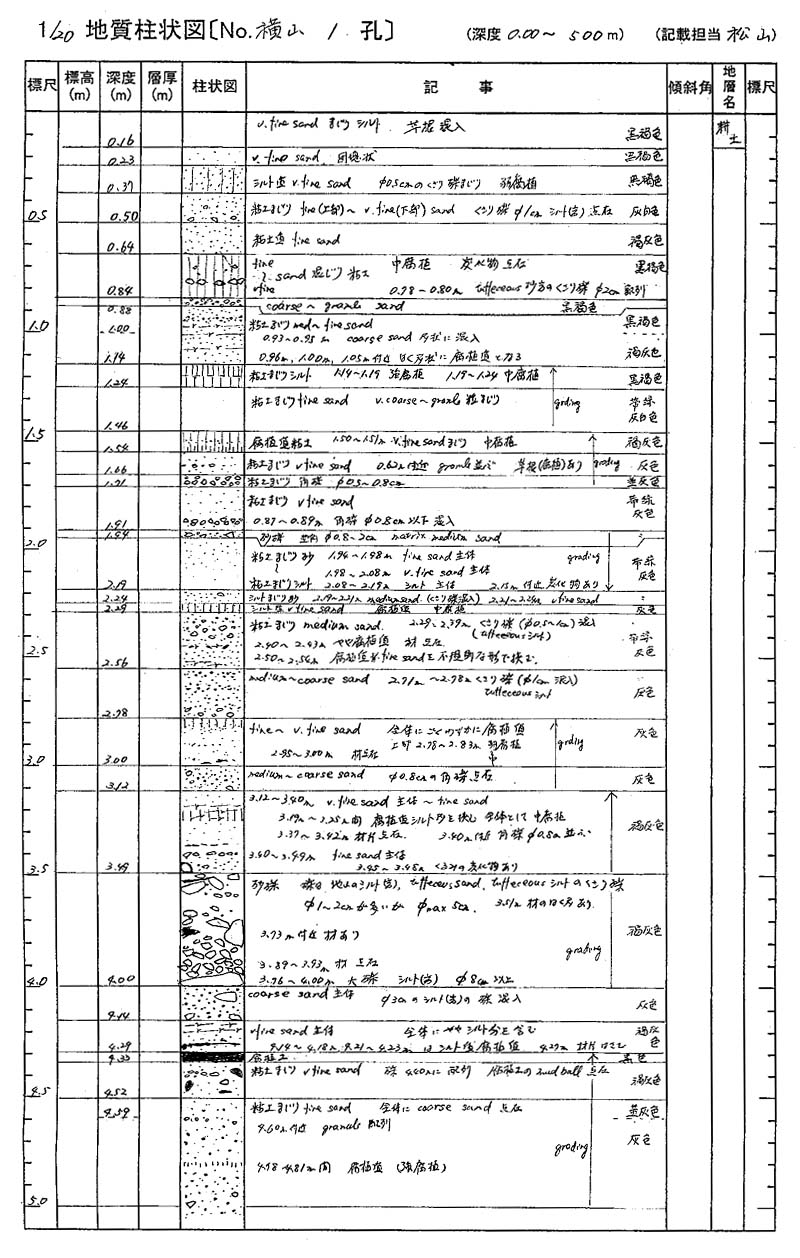 1/20 地質柱状図〔No. 横山 1 孔〕 (深度 0.00～ 500m) (記載担当 松山)
標尺 標高(m) 深度(m) 層厚(m) 柱状図 記事 傾斜角 地層名 標尺
v. fine sand まじりシルト 草根混入 黒褐色 耕土
0.16
0.23 v. fine sand 団塊状 黒褐色
0.37 シルト質 v. fine sand φ0.5cmのくさり礫まじり 弱腐植 黒褐色
0.5 0.50 粘土まじり fine(上部)～ v. fine(下部) sand くさり礫 φ1cm シルト(岩) 点在 灰白色
0.64 粘土質 fine sand 褐灰色
fine 中腐植 炭化物点在 黒褐色
～ sand 混じり粘土
0.84 vfine 0.78～0.80m tuffeceous 砂岩のくさり礫 φ2cm 配列
0.88 coarse～granule sand 黒褐色
1.0 1.00 粘土まじり med～fine sand 黒褐色
0.93～0.95m coarse sand 分状に混入
1.14 0.96m, 1.00m, 1.05m付近 褐灰色
1.24 粘土まじりシルト 1.14～1.19 強腐植 1.19～1.24 中腐植 黒褐色
粘土まじり fine sand v.coarse～granule 粒まじり grading 帯緑灰白色
1.46
1.5 1.54 腐植質粘土 1.50～1.51m v.fine sandまじり 中腐植 褐灰色
1.66 粘土まじり v fine sand 0.62m付近 granule並ぶ 草根(腐植)あり grading 灰色
1.71 粘土まじり 角礫 φ0.5～0.8cm
粘土まじり v fine sand 帯緑灰色
1.91 0.87～0.89m 角礫 φ0.8cm以下混入
2.0 1.94 砂礫 φ0.8～2cm matrix medium sand
粘土まじり砂 1.94～1.98m fine sand主体 grading 帯緑灰色
1.98～2.08m v. fine sand 主体
2.19 粘土まじりシルト 2.08～2.19m シルト主体 2.15m付近炭化物あり
2.24 シルトまじり砂 2.19～2.21m medium sand (くさり礫混入) 2.21～2.24m vfine sand
2.29 シルト質 v fine sand 腐植質 中腐植 灰色
粘土まじり medium sand. 2.29～2.39m くさり礫(φ0.5～1cm)混入
(tuffeceousシルト)
2.40～2.43m やや腐植質 材点在. 帯緑灰色
2.5 2.56 2.50～2.54m 腐植質 v fine sandを不規則な形で挟む.
medium～coarse sand 2.71m～2.78m くさり礫(φ1cm混入) 灰色
tuffeceous シルト
2.78
fine～v. fine sand 全体にごくわずかに腐植質 灰色
上部 2.78～2.83m 弱腐植 grading
3.0 3.00 2.95～3.00m 材点在 中
3.12 medium～coarse sand φ0.8cmの角礫点在 灰色
3.12～3.40m v. fine sand 主体～fine sand
3.19m～3.25m間 腐植質シルト砂を挟む 全体として中腐植 褐灰色
3.37～3.42m 材片点在. 3.40m付近 角礫φ0.8cm並ぶ
3.5 3.49 3.40～3.49m fine sand主体
3.45～3.48m くさりの炭化物あり
砂礫 シルト(岩), tuffeceous sand, tuffeceous シルトのくさり礫
φ1～2cmが多いが φmax 5cm. 3.51m 褐灰色
3.73m付近 材あり grading
3.89～3.93m 材点在
4.0 4.00 3.96～4.00m 大礫 シルト(岩) φ8cm以上
coarse sand主体 φ3cmのシルト(岩)の礫混入 灰色
4.14
vfine sand主体 全体にややシルト分を含む 褐灰色
4.29 4.14～4.18m, 4.21～4.23mはシルト質腐植質 4.27m 材片はさむ
4.33 腐植土 黒色
粘土まじり v fine sand 礫 4.40mに配列 腐植土のmud ball点在 褐灰色
4.5 4.52
4.59 粘土まじり fine sand 全体にcoarse sand点在 灰色
4.60m付近 granule配列 灰色
grading
4.78～4.81m間 腐植質 (強腐植)
5.0